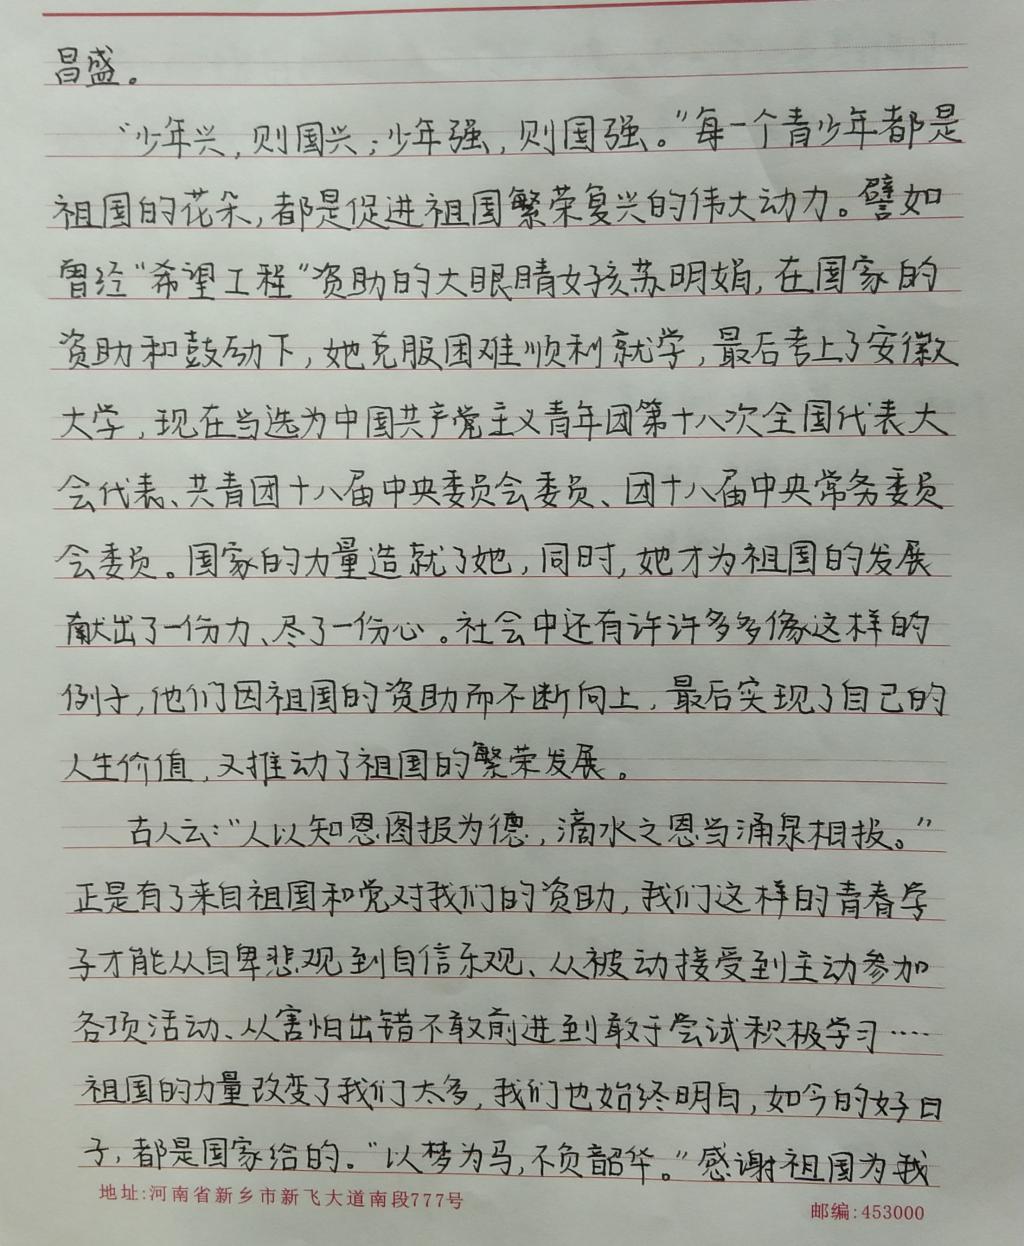 昌盛。
“少年兴，则国兴；少年强，则国强。”每一个青少年都是
祖国的花朵，都是促进祖国繁荣复兴的伟大动力。譬如
曾经“希望工程”资助的大眼睛女孩苏明娟，在国家的
资助和鼓励下，她克服困难顺利就学，最后考上了安徽
大学，现在当选为中国共产党主义青年团第十八次全国代表大
会代表、共青团十八届中央委员会委员、团十八届中央常务委员
会委员。国家的力量造就了她，同时，她才为祖国的发展
献出了一份力、尽了一份心。社会中还有许许多多像这样的
例子，他们因祖国的资助而不断向上，最后实现了自己的
人生价值，又推动了祖国的繁荣发展。
古人云：“人以知恩图报为德，滴水之恩当涌泉相报。”
正是有了来自祖国和党对我们的资助，我们这样的青春学
子才能从自卑悲观到自信乐观、从被动接受到主动参加
各项活动、从害怕出错不敢前进到敢于尝试积极学习……
祖国的力量改变了我们太多，我们也始终明白，如今的好日
子，都是国家给的。“以梦为马，不负韶华。”感谢祖国为我
地址:河南省新乡市新飞大道南段777号
邮编:453000